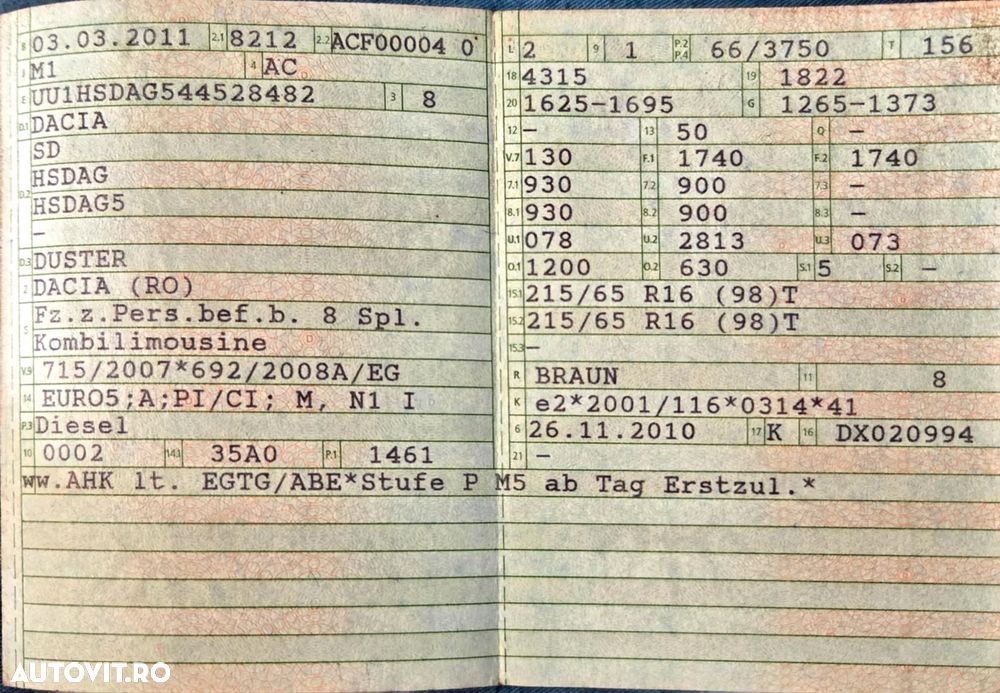 B 03.03.2011 2.1 8212 2.2 ACF00004 0
J M1 4 AC
E UU1HSDAG544528482 3 8
D.1 DACIA
SD
D.2 HSDAG
HSDAG5
-
D.3 DUSTER
2 DACIA (RO)
5 Fz.z.Pers.bef.b. 8 Spl.
Kombilimousine
V.9 715/2007*692/2008A/EG
14 EURO5;A;PI/CI; M, N1 I
P.3 Diesel
10 0002 14.1 35A0 P.1 1461
L 2 9 1 P.2 P.4 66/3750 T 156
18 4315 19 1822
20 1625-1695 G 1265-1373
12 - 13 50 Q -
V.7 130 F.1 1740 F.2 1740
7.1 930 7.2 900 7.3 -
8.1 930 8.2 900 8.3 -
U.1 078 U.2 2813 U.3 073
O.1 1200 O.2 630 S.1 5 S.2 -
15.1 215/65 R16 (98)T
15.2 215/65 R16 (98)T
15.3 -
R BRAUN 11 8
K e2*2001/116*0314*41
6 26.11.2010 17 K 16 DX020994
21 -
ww.AHK lt. EGTG/ABE*Stufe P M5 ab Tag Erstzul.*
AUTOVIT.RO